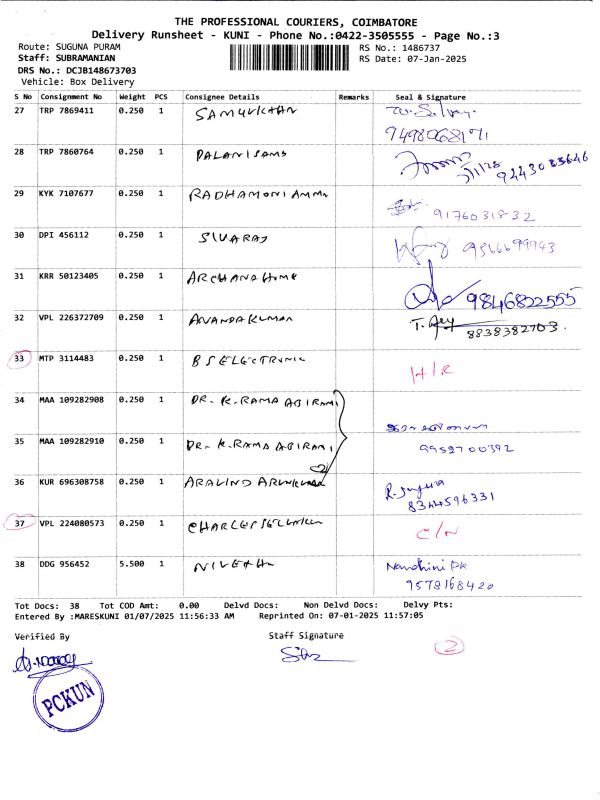 THE PROFESSIONAL COURIERS, COIMBATORE
Delivery Runsheet - KUNI - Phone No.:0422-3505555 - Page No.:3
Route: SUGUNA PURAM RS No.: 1486737
Staff: SUBRAMANIAN RS Date: 07-Jan-2025
DRS No.: DCJB148673703
Vehicle: Box Delivery
S No Consignment No Weight PCS Consignee Details Remarks Seal & Signature
27 TRP 7869411 0.250 1
9498068171
28 TRP 7860764 0.250 1 PALANISAMS 9443083646
29 KYK 7107677 0.250 1 RADHAMONI AMMA 9176031832
30 DPI 456112 0.250 1 SIVARAJ 9566699943
31 KRR 50123405 0.250 1 ARCHANA HOME 9846822555
32 VPL 226372709 0.250 1 ANANDAKUMAR T. Jey
8838382703.
33 MTP 3114483 0.250 1 BS ELECTRONIC
34 MAA 109282908 0.250 1 DR. K. RAMA ABIRAMI
35 MAA 109282910 0.250 1 DR. K. RAMA ABIRAMI 9952700392
36 KUR 696308758 0.250 1 ARAVIND ARUNKUMAR
8344596331
37 VPL 224080573 0.250 1 C/N
38 DDG 956452 5.500 1 NIVETHA Nandhini PK
9578168420
Tot Docs: 38 Tot COD Amt: 0.00 Delvd Docs: Non Delvd Docs: Delvy Pts:
Entered By :MARESKUNI 01/07/2025 11:56:33 AM Reprinted On: 07-01-2025 11:57:05
Verified By Staff Signature
2
PCKUN